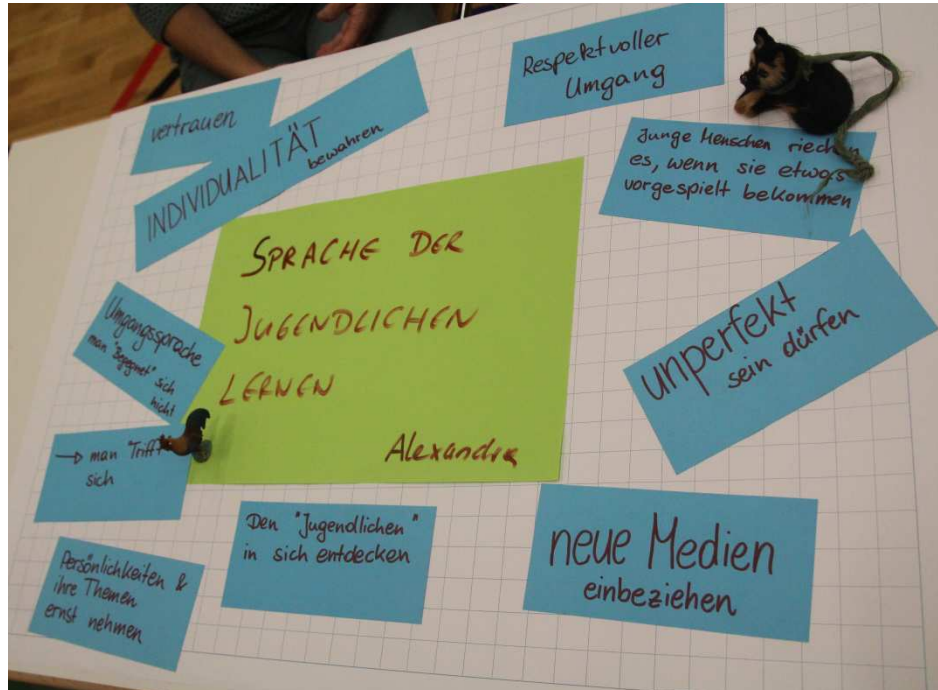 vertrauen
INDIVIDUALITÄT
bewahren
Respektvoller
Umgang
Junge Menschen riechen
es, wenn sie etwas
vorgespielt bekommen
SPRACHE DER
JUGENDLICHEN
LERNEN
Alexandra
Umgangssprache
man "Begegnet" sich
nicht
→ man "Trifft"
sich
unperfekt
sein dürfen
Persönlichkeiten &
ihre Themen
ernst nehmen
Den "Jugendlichen"
in sich entdecken
neue Medien
einbeziehen